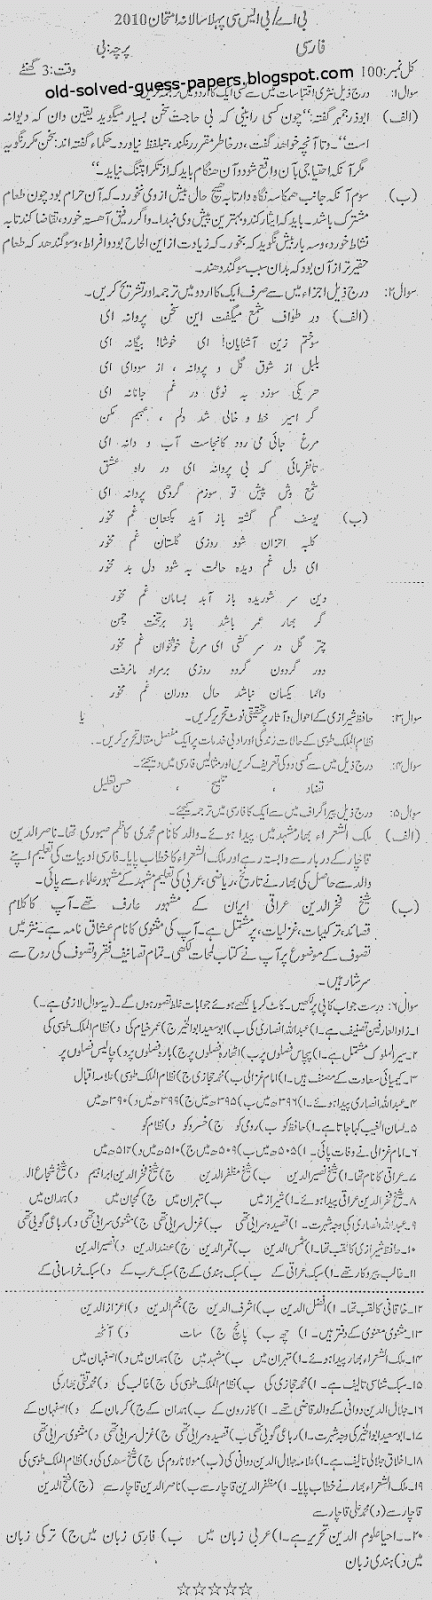 بی اے/بی ایس سی پہلا سالانہ امتحان 2010
فارسی پرچہ: بی
کل نمبر: 100 وقت: 3 گھنٹے
old-solved-guess-papers.blogspot.com
سوال۱: درج ذیل نثری اقتباسات میں سے کسی ایک کا اردو میں ترجمہ کریں۔
(الف) ابوذر جمہر گفتہ: "چون کسی را بینی کہ بی حاجت سخن بسیار میگوید یقین دان کہ دیوانہ
است"۔ و تا آنچہ خواهد گفت، در خاطر مقرر نکند، بتلفظ نیاورد۔ حکماء گفتہ اند: سخن مکرر نگوید
مگر آنکہ احتیاجی بآن واقع شود و آن هنگام باید کہ از تکرار تنگ نیاید۔"
(ب) سوم آنکہ جانب همکاسہ نگاه دارد تا بہ هیچ حال بیش از وی نخورد کہ آن حرام بود چون طعام
مشترک باشد۔ باید کہ ایثار کند و بہترین پیش وی نهد۔ و اگر رفیق آهستہ خورد، تقاضا کند تا بہ
نشاط خورد، و سہ بار بیش نگوید کہ بخور کہ زیادت از این الحاح بود و افراط، و سوگند ندهد کہ طعام
حقیر تر از آن بود کہ بدان سبب سوگند دهند۔
سوال۲: درج ذیل اجزاء میں سے صرف ایک کا اردو میں ترجمہ اور تشریح کریں۔
(الف) در طواف شمع میگفت این سخن پروانہ ای
سوختم زین آشنایان! ای خوشا! بیگانہ ای
بلبل از شوق گل و پروانہ، از سودای ای
هر یکی سوزد بہ نوعی در غم جانانہ ای
گر اسیر خط و خالی شد دلم، عیبم مکن
مرغ جائی می رود کانجاست آب و دانہ ای
تا نفرمائی کہ بی پروانہ ای در راه عشق
شمع وش پیش تو سوزم گر دهی پروانہ ای
(ب) یوسف گم گشتہ باز آید بکنعان غم مخور
کلبہ احزان شود روزی گلستان غم مخور
ای دل غم دیدہ حالت بہ شود دل بد مخور
وین سر شوریدہ باز آید بسامان غم مخور
گر بهار عمر باشد باز بر تخت چمن
چتر گل در سر کشی ای مرغ خوشخوان غم مخور
دور گردون گر دو روزی بر مراد ما نرفت
دائما یکسان نباشد حال دوران غم مخور
سوال۳: حافظ شیرازی کے احوال و آثار پر تحقیقی نوٹ تحریر کریں۔ یا
نظام الملک طوسی کے حالات زندگی اور ادبی خدمات پر ایک مفصل مقالہ تحریر کریں۔
سوال۴: درج ذیل میں سے کسی دو کی تعریف کریں اور مثالیں فارسی میں دیجئے۔
تضاد ، تلمیح ، حسن تعلیل
سوال۵: درج ذیل پیراگراف میں سے ایک کا فارسی میں ترجمہ کیجئے۔
(الف) ملک الشعراء بهار مشہد میں پیدا ہوئے۔ والد کا نام محمدی کاظم صبوری تھا۔ ناصر الدین
قاچار کے دربار سے وابستہ رہے اور ملک الشعراء کا خطاب پایا۔ فارسی ادبیات کی تعلیم اپنے
والد سے حاصل کی بهار نے تاریخ، ریاضی، عربی کی تعلیم مشہد کے مشہور علماء سے پائی۔
(ب) شیخ فخر الدین عراقی ایران کے مشہور عارف تھے۔ آپ کا کلام
قصائد، ترکیبات، غزلیات، پر مشتمل ہے۔ آپ کی مثنوی کا نام عشاق نامہ ہے۔ نثر میں
تصوف کے موضوع پر آپ نے کتاب لمعات لکھی۔ تمام تصانیف فقر و تصوف کی روح سے
سرشار ہیں۔
سوال۶: درست جواب کاپی پر لکھیں۔ کاٹ کر یا لکھے ہوئے جوابات غلط تصور ہوں گے۔ (یہ سوال لازمی ہے۔)
۱۔ زاد العارفین تصنیف ہے۔ ا) عبداللہ انصاری کی ب) ابوسعید ابوالخیر ج) عمر خیام کی د) نظام الملک طوسی کی
۲۔ سیر الملوک مشتمل ہے۔ ا) پچاس فصلوں پر ب) اٹھارہ فصلوں پر ج) بارہ فصلوں پر د) چالیس فصلوں پر
۳۔ کیمیائی سعادت کے مصنف ہیں۔ ا) امام غزالی ب) محمد حجازی ج) نظام الملک طوسی د) علامہ اقبال
۴۔ عبداللہ انصاری پیدا ہوئے۔ ا) ۳۹۶ھ میں ب) ۳۹۵ھ میں ج) ۳۹۹ھ میں د) ۳۹۰ھ میں
۵۔ لسان الغیب کہا جاتا ہے۔ ا) حافظ کو ب) رومی کو ج) خسرو کو د) نظام کو
۶۔ امام غزالی نے وفات پائی۔ ا) ۵۰۵ھ میں ب) ۵۰۹ھ میں ج) ۵۱۰ھ میں د) ۵۱۲ھ میں
۷۔ عراقی کا نام تھا۔ ا) شیخ نصیر الدین ب) شیخ مظفر الدین ج) شیخ فخر الدین ابراہیم د) شیخ شجاع الد
۸۔ شیخ فخر الدین عراقی پیدا ہوئے۔ ا) شیراز میں ب) تہران میں ج) کمجان میں د) ہمدان میں
۹۔ عبداللہ انصاری کی وجہ شہرت۔ ا) قصیدہ سرایی تھی ب) غزل سرایی تھی ج) مثنوی سرایی تھی د) رباعی گویی تھی
۱۰۔ حافظ شیرازی کا لقب تھا۔ ا) شمس الدین ب) قمر الدین ج) عضد الدین د) نصیر الدین
۱۱۔ غالب پیرو کار تھے۔ ا) سبک عراقی کے ب) سبک ہندی کے ج) سبک عرب کے د) سبک خراسانی کے
۱۲۔ خاقانی کا لقب تھا۔ ا) افضل الدین ب) اشرف الدین ج) نجم الدین د) اعزاز الدین
۱۳۔ مثنوی معنوی کے دفتر ہیں۔ ا) چھ ب) پانچ ج) سات د) آٹھ
۱۴۔ ملک الشعراء بهار پیدا ہوئے۔ ا) تہران میں ب) مشہد میں ج) ہمدان میں د) اصفہان میں
۱۵۔ سبک شناسی تالیف ہے۔ ا) محمد حجازی کی ب) نظام الملک طوسی کی ج) غالب کی د) محمد تقی بهار کی
۱۶۔ جلال الدین دوانی کے والد قاضی تھے۔ ا) کازرون کے ب) ہمدان کے ج) کرمان کے د) اصفہان کے
۱۷۔ ابوسعید ابوالخیر کی وجہ شہرت۔ ا) رباعی گویی تھی ب) قصیدہ سرایی تھی ج) غزل سرایی تھی د) مثنوی سرایی تھی
۱۸۔ اخلاق جلالی تالیف ہے۔ ا) علامہ جلال الدین دوانی کی ب) مولانا روم کی ج) شیخ سعدی کی د) نظام الملک طوسی کی
۱۹۔ ملک الشعراء بهار نے خطاب پایا۔ ا) مظفر الدین قاچار سے ب) ناصر الدین قاچار سے ج) فتح الدین
قاچار سے د) محمد علی قاچار سے
۲۰۔ احیاء علوم الدین تحریر ہے۔ ا) عربی زبان میں ب) فارسی زبان میں ج) ترکی زبان
میں د) ہندی زبان
☆☆☆☆☆